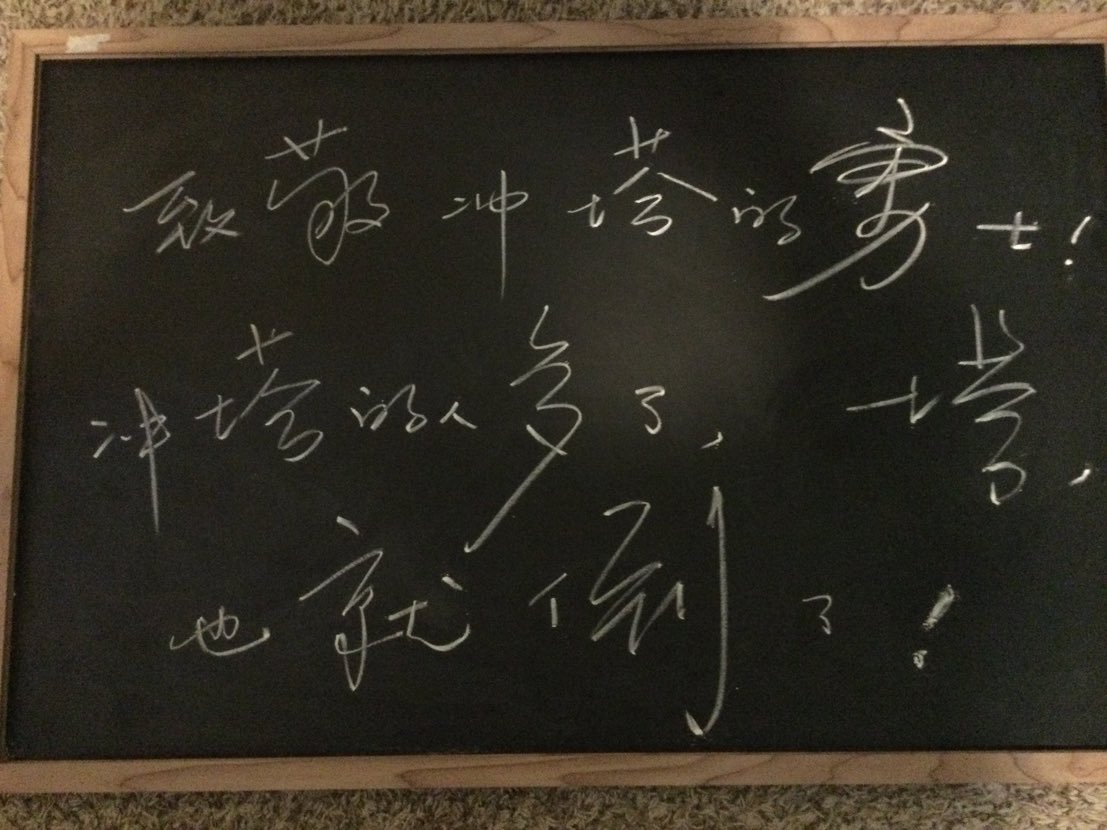 致敬冲塔的勇士!
冲塔的人多了,塔,
也就倒了!